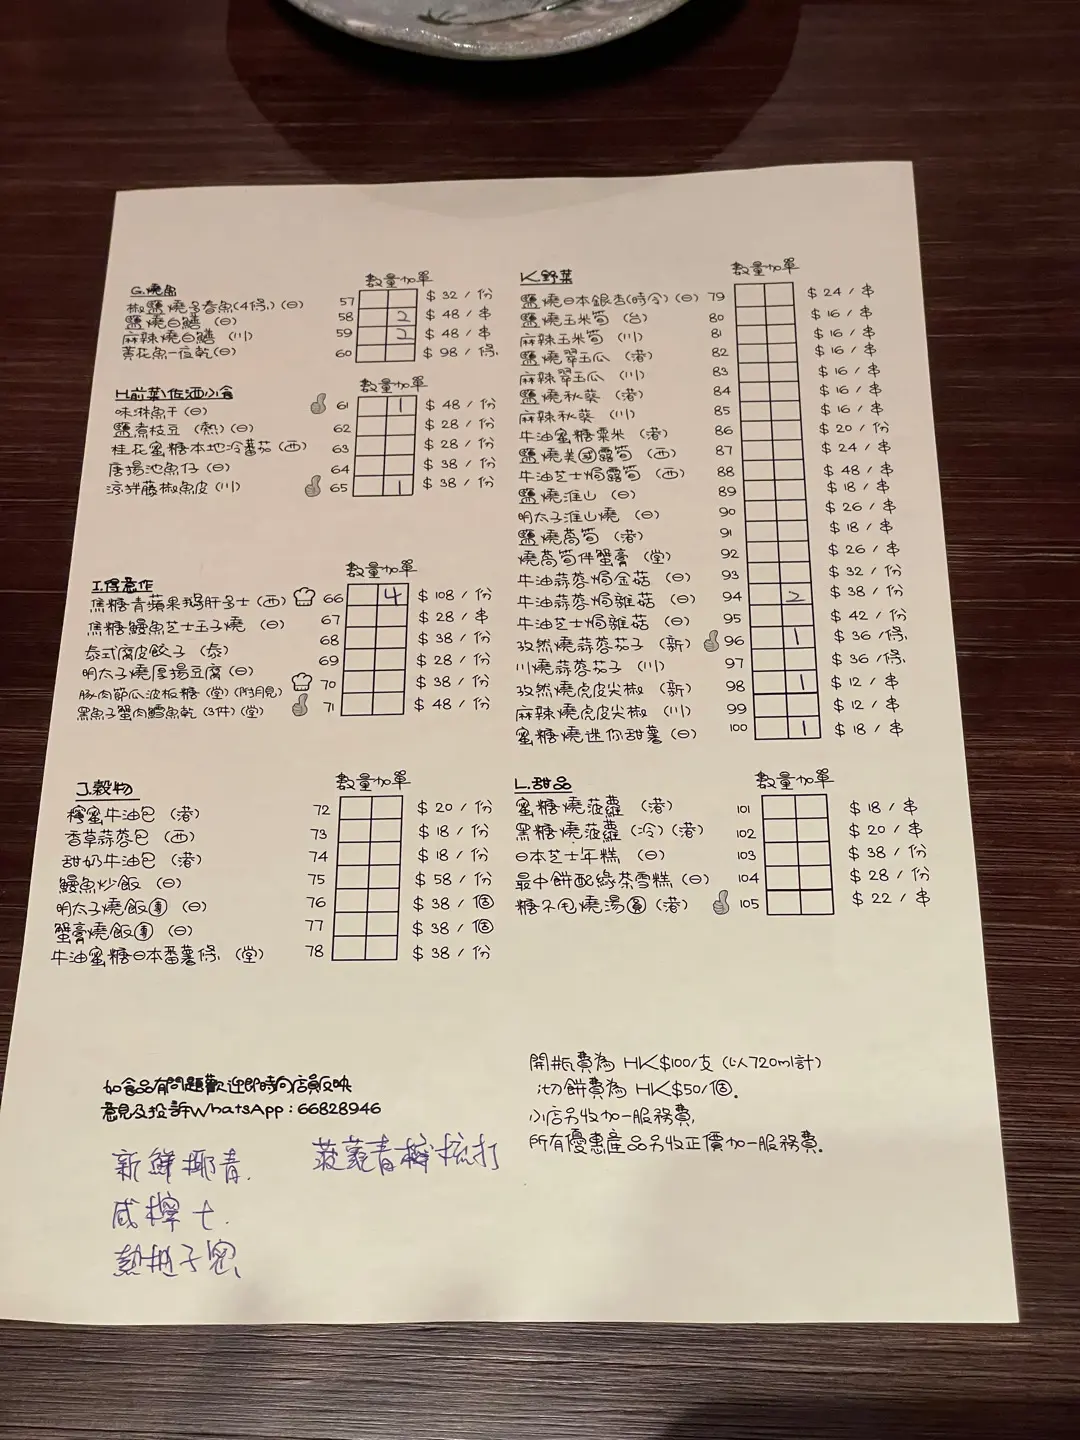 數量加單
G.燒魚
椒鹽燒多春魚(4條)(日) 57 $ 32 / 份
鹽燒白鱔 (日) 58 2 $ 48 / 串
麻辣燒白鱔 (川) 59 2 $ 48 / 串
黃花魚一夜乾(日) 60 $ 98 / 條
數量加單
H.前菜\佐酒小食
味淋魚干 (日) 61 1 $ 48 / 份
鹽煮枝豆 (熱)(日) 62 $ 28 / 份
桂花蜜糖本地冷番茄 (西) 63 $ 28 / 份
唐揚池魚仔 (日) 64 $ 38 / 份
涼拌藤椒魚皮 (川) 65 1 $ 38 / 份
數量加單
I.得意作
焦糖青蘋果鵝肝多士 (西) 66 4 $ 108 / 份
焦糖鰻魚芝士玉子燒 (日) 67 $ 28 / 串
泰式腐皮餃子 (泰) 68 $ 38 / 份
明太子燒厚揚豆腐 (日) 69 $ 28 / 份
豚肉節瓜波板糖 (堂) (附月見) 70 $ 38 / 份
黑魚子蟹肉鱈魚乾 (3件) (堂) 71 $ 48 / 份
數量加單
J.穀物
檸蜜牛油包 (港) 72 $ 20 / 份
香草蒜蓉包 (西) 73 $ 18 / 份
甜奶牛油包 (港) 74 $ 18 / 份
鰻魚炒飯 (日) 75 $ 58 / 份
明太子燒飯團 (日) 76 $ 38 / 個
蟹膏燒飯團 (日) 77 $ 38 / 個
牛油蜜糖日本番薯條 (堂) 78 $ 38 / 份
數量加單
K.野菜
鹽燒日本銀杏(時令) (日) 79 $ 24 / 串
鹽燒玉米筍 (台) 80 $ 16 / 串
麻辣玉米筍 (川) 81 $ 16 / 串
鹽燒翠玉瓜 (港) 82 $ 16 / 串
麻辣翠玉瓜 (川) 83 $ 16 / 串
鹽燒秋葵 (港) 84 $ 16 / 串
麻辣秋葵 (川) 85 $ 16 / 串
牛油蜜糖粟米 (港) 86 $ 20 / 份
鹽燒美國露筍 (西) 87 $ 24 / 串
牛油芝士焗露筍 (西) 88 $ 48 / 串
鹽燒淮山 (日) 89 $ 18 / 串
明太子淮山燒 (日) 90 $ 26 / 串
鹽燒萵筍 (港) 91 $ 18 / 串
燒萵筍伴蟹膏 (堂) 92 $ 26 / 串
牛油蒜蓉焗金菇 (日) 93 $ 32 / 份
牛油蒜蓉焗雜菇 (日) 94 2 $ 38 / 份
牛油芝士焗雜菇 (日) 95 $ 42 / 份
孜然燒蒜蓉茄子 (新) 96 1 $ 36 / 條
川燒蒜蓉茄子 (川) 97 $ 36 / 條
孜然燒虎皮尖椒 (新) 98 1 $ 12 / 串
麻辣燒虎皮尖椒 (川) 99 $ 12 / 串
蜜糖燒迷你甜薯 (日) 100 1 $ 18 / 串
數量加單
L.甜品
蜜糖燒菠蘿 (港) 101 $ 18 / 串
黑糖燒菠蘿 (冷) (港) 102 $ 20 / 串
日本芝士年糕 (日) 103 $ 38 / 份
最中餅配綠茶雪糕 (日) 104 $ 28 / 份
糖不甩燒湯圓 (港) 105 $ 22 / 串
如食品有問題歡迎即時向店員反映
意見及投訴WhatsApp : 66828946
開瓶費為 HK$100/支 (以720ml計)
切餅費為 HK$50/個。
小店另收加一服務費,
所有優惠產品另收正價加一服務費。
新鮮椰青 菠蘿青檸梳打
咸檸七
熱柚子蜜